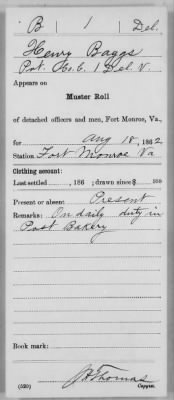 B | 1 | Del.
Henry Baggs
Pvt. Co. C. 1 Del. V.
Appears on
Muster Roll
of detached officers and men, Fort Monroe, Va.,
for Aug 18, 1862
Station Fort Monroe Va
Clothing account:
Last settled, 186 ; drawn since $ 100
Present or absent: Present
Remarks: On daily duty in
Post Bakery
Book mark:
JHThomas
(520) Copyist.